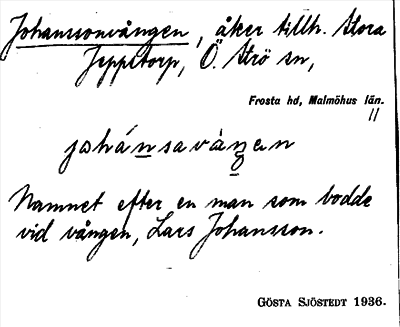 Johanssonvången, åker tillh. Stora
Jeppstorp, Ö. Strö sn,
Frosta hd, Malmöhus län.
11
johánsavàŋen
Namnet efter en man som bodde
vid vången, Lars Johansson.
GÖSTA SJÖSTEDT 1936.